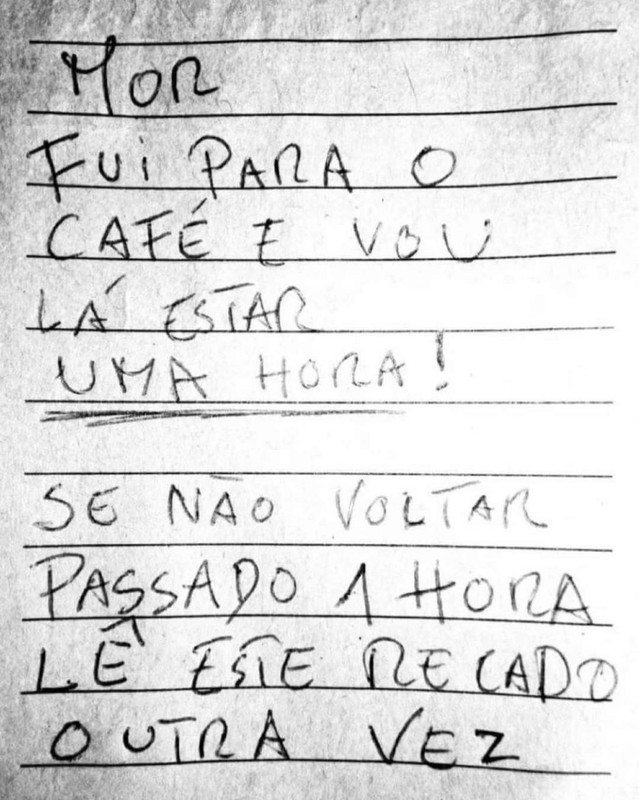 MOR
FUi PARA O
CAFÉ E VOU
LÁ ESTAR
UMA HORA!
SE NÃO VOLTAR
PASSADO 1 HORA
LÊ ESTE RECADO
OUTRA VEZ